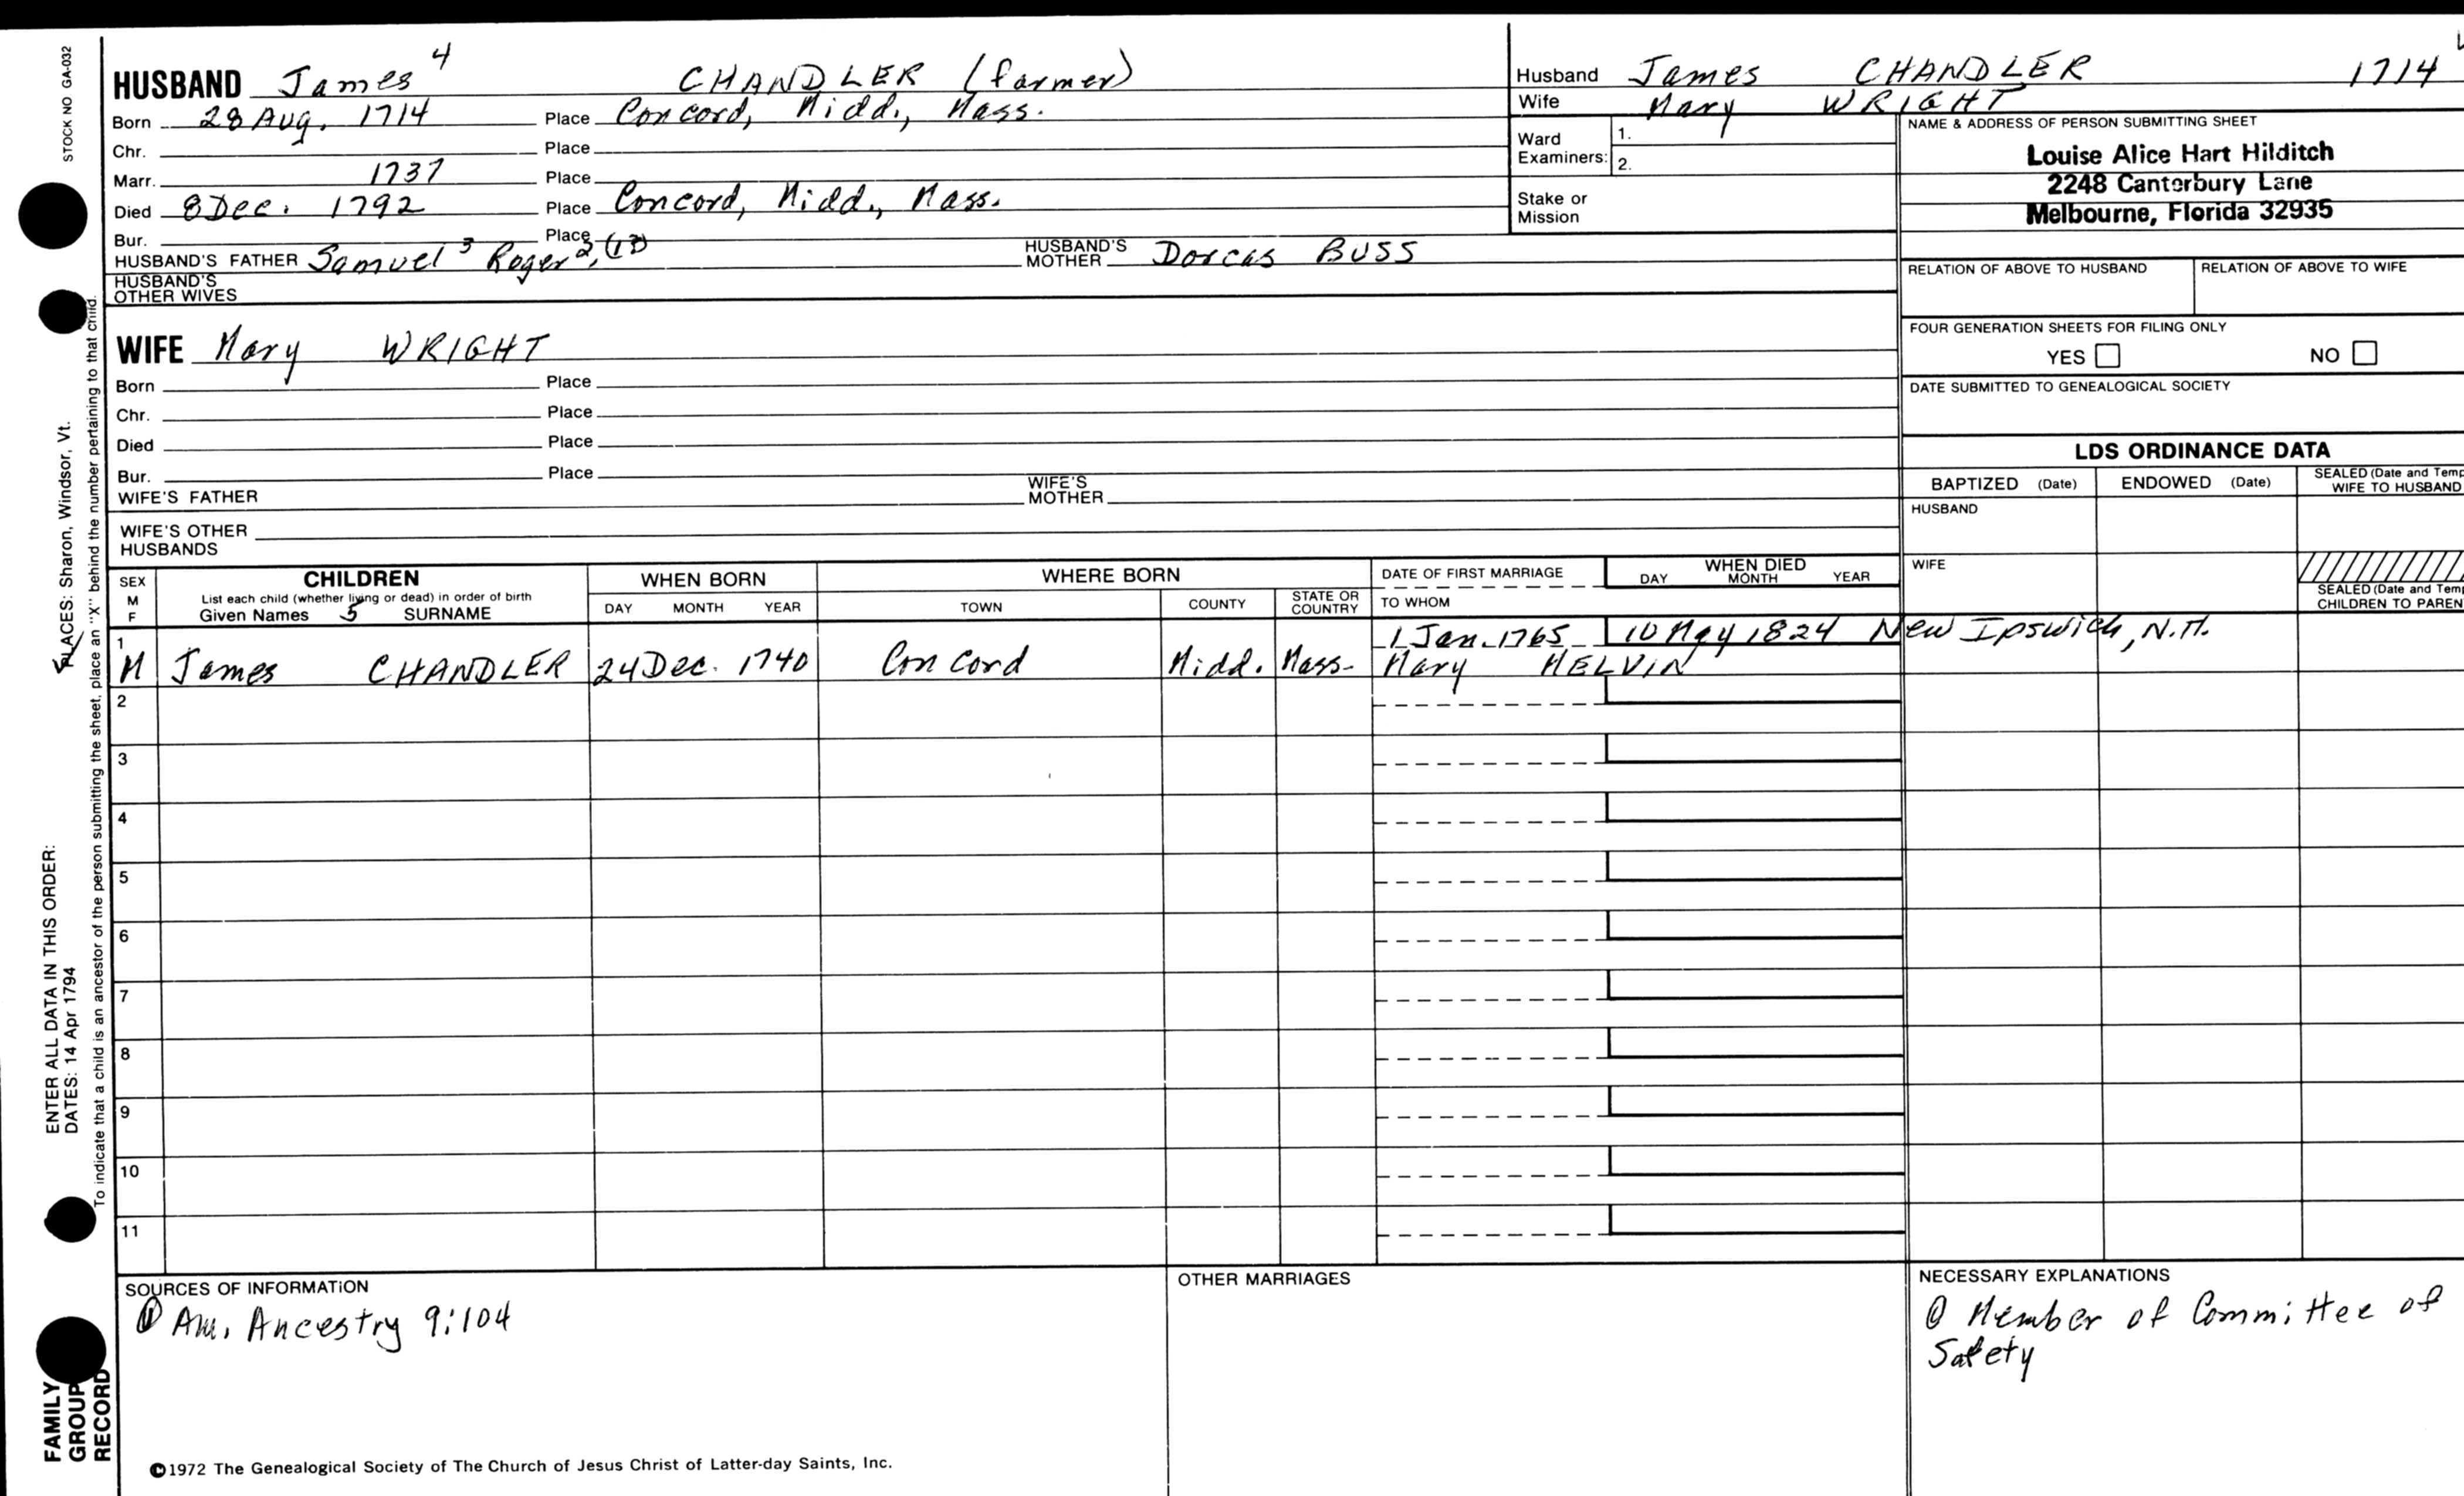 STOCK NO GA-032
HUSBAND James 4 CHANDLER (farmer)
Born 28 Aug. 1714 Place Concord, Midd., Mass.
Chr. Place
Marr. 1737 Place
Died 8 Dec. 1792 Place Concord, Midd., Mass.
Bur. Place
HUSBAND'S FATHER Samuel 3 Roger 2, HUSBAND'S MOTHER Dorcas BUSS
HUSBAND'S OTHER WIVES
Husband James CHANDLER 1714
Wife Mary WRIGHT
Ward Examiners: 1.
2.
Stake or Mission
NAME & ADDRESS OF PERSON SUBMITTING SHEET
Louise Alice Hart Hilditch
2248 Canterbury Lane
Melbourne, Florida 32935
RELATION OF ABOVE TO HUSBAND RELATION OF ABOVE TO WIFE
FOUR GENERATION SHEETS FOR FILING ONLY
YES NO
DATE SUBMITTED TO GENEALOGICAL SOCIETY
WIFE Mary WRIGHT
Born Place
Chr. Place
Died Place
Bur. Place
WIFE'S FATHER WIFE'S MOTHER
WIFE'S OTHER HUSBANDS
LDS ORDINANCE DATA
BAPTIZED (Date) ENDOWED (Date) SEALED (Date and Temp
WIFE TO HUSBAND
HUSBAND
WIFE
SEALED (Date and Tem
CHILDREN TO PAREN
SEX M F CHILDREN WHEN BORN WHERE BORN DATE OF FIRST MARRIAGE WHEN DIED
List each child (whether living or dead) in order of birth
Given Names 5 SURNAME DAY MONTH YEAR TOWN COUNTY STATE OR COUNTRY TO WHOM DAY MONTH YEAR
1 1 Jan. 1765 10 May 1824 New Ipswich, N.H.
M James CHANDLER 24 Dec. 1740 Concord Midd. Mass. Mary MELVIN
2
3
4
5
6
7
8
9
10
11
SOURCES OF INFORMATION
① Am. Ancestry 9:104
OTHER MARRIAGES
NECESSARY EXPLANATIONS
① Member of Committee of
Safety
©1972 The Genealogical Society of The Church of Jesus Christ of Latter-day Saints, Inc.
FAMILY
GROUP
RECORD
ENTER ALL DATA IN THIS ORDER:
DATES: 14 Apr 1794
PLACES: Sharon, Windsor, Vt.
To indicate that a child is an ancestor of the person submitting the sheet, place an "X" behind the number pertaining to that child.